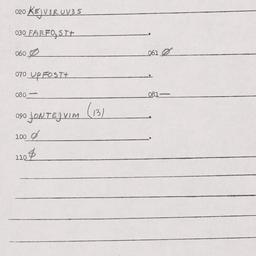 020 KEJVIRUV35
030 FARFO,ST+ .
060 Ø 061 Ø
070 UPFOST+ .
080 — 081 —
090 JONTEJVIM (13) .
100 Ø .
110 Ø